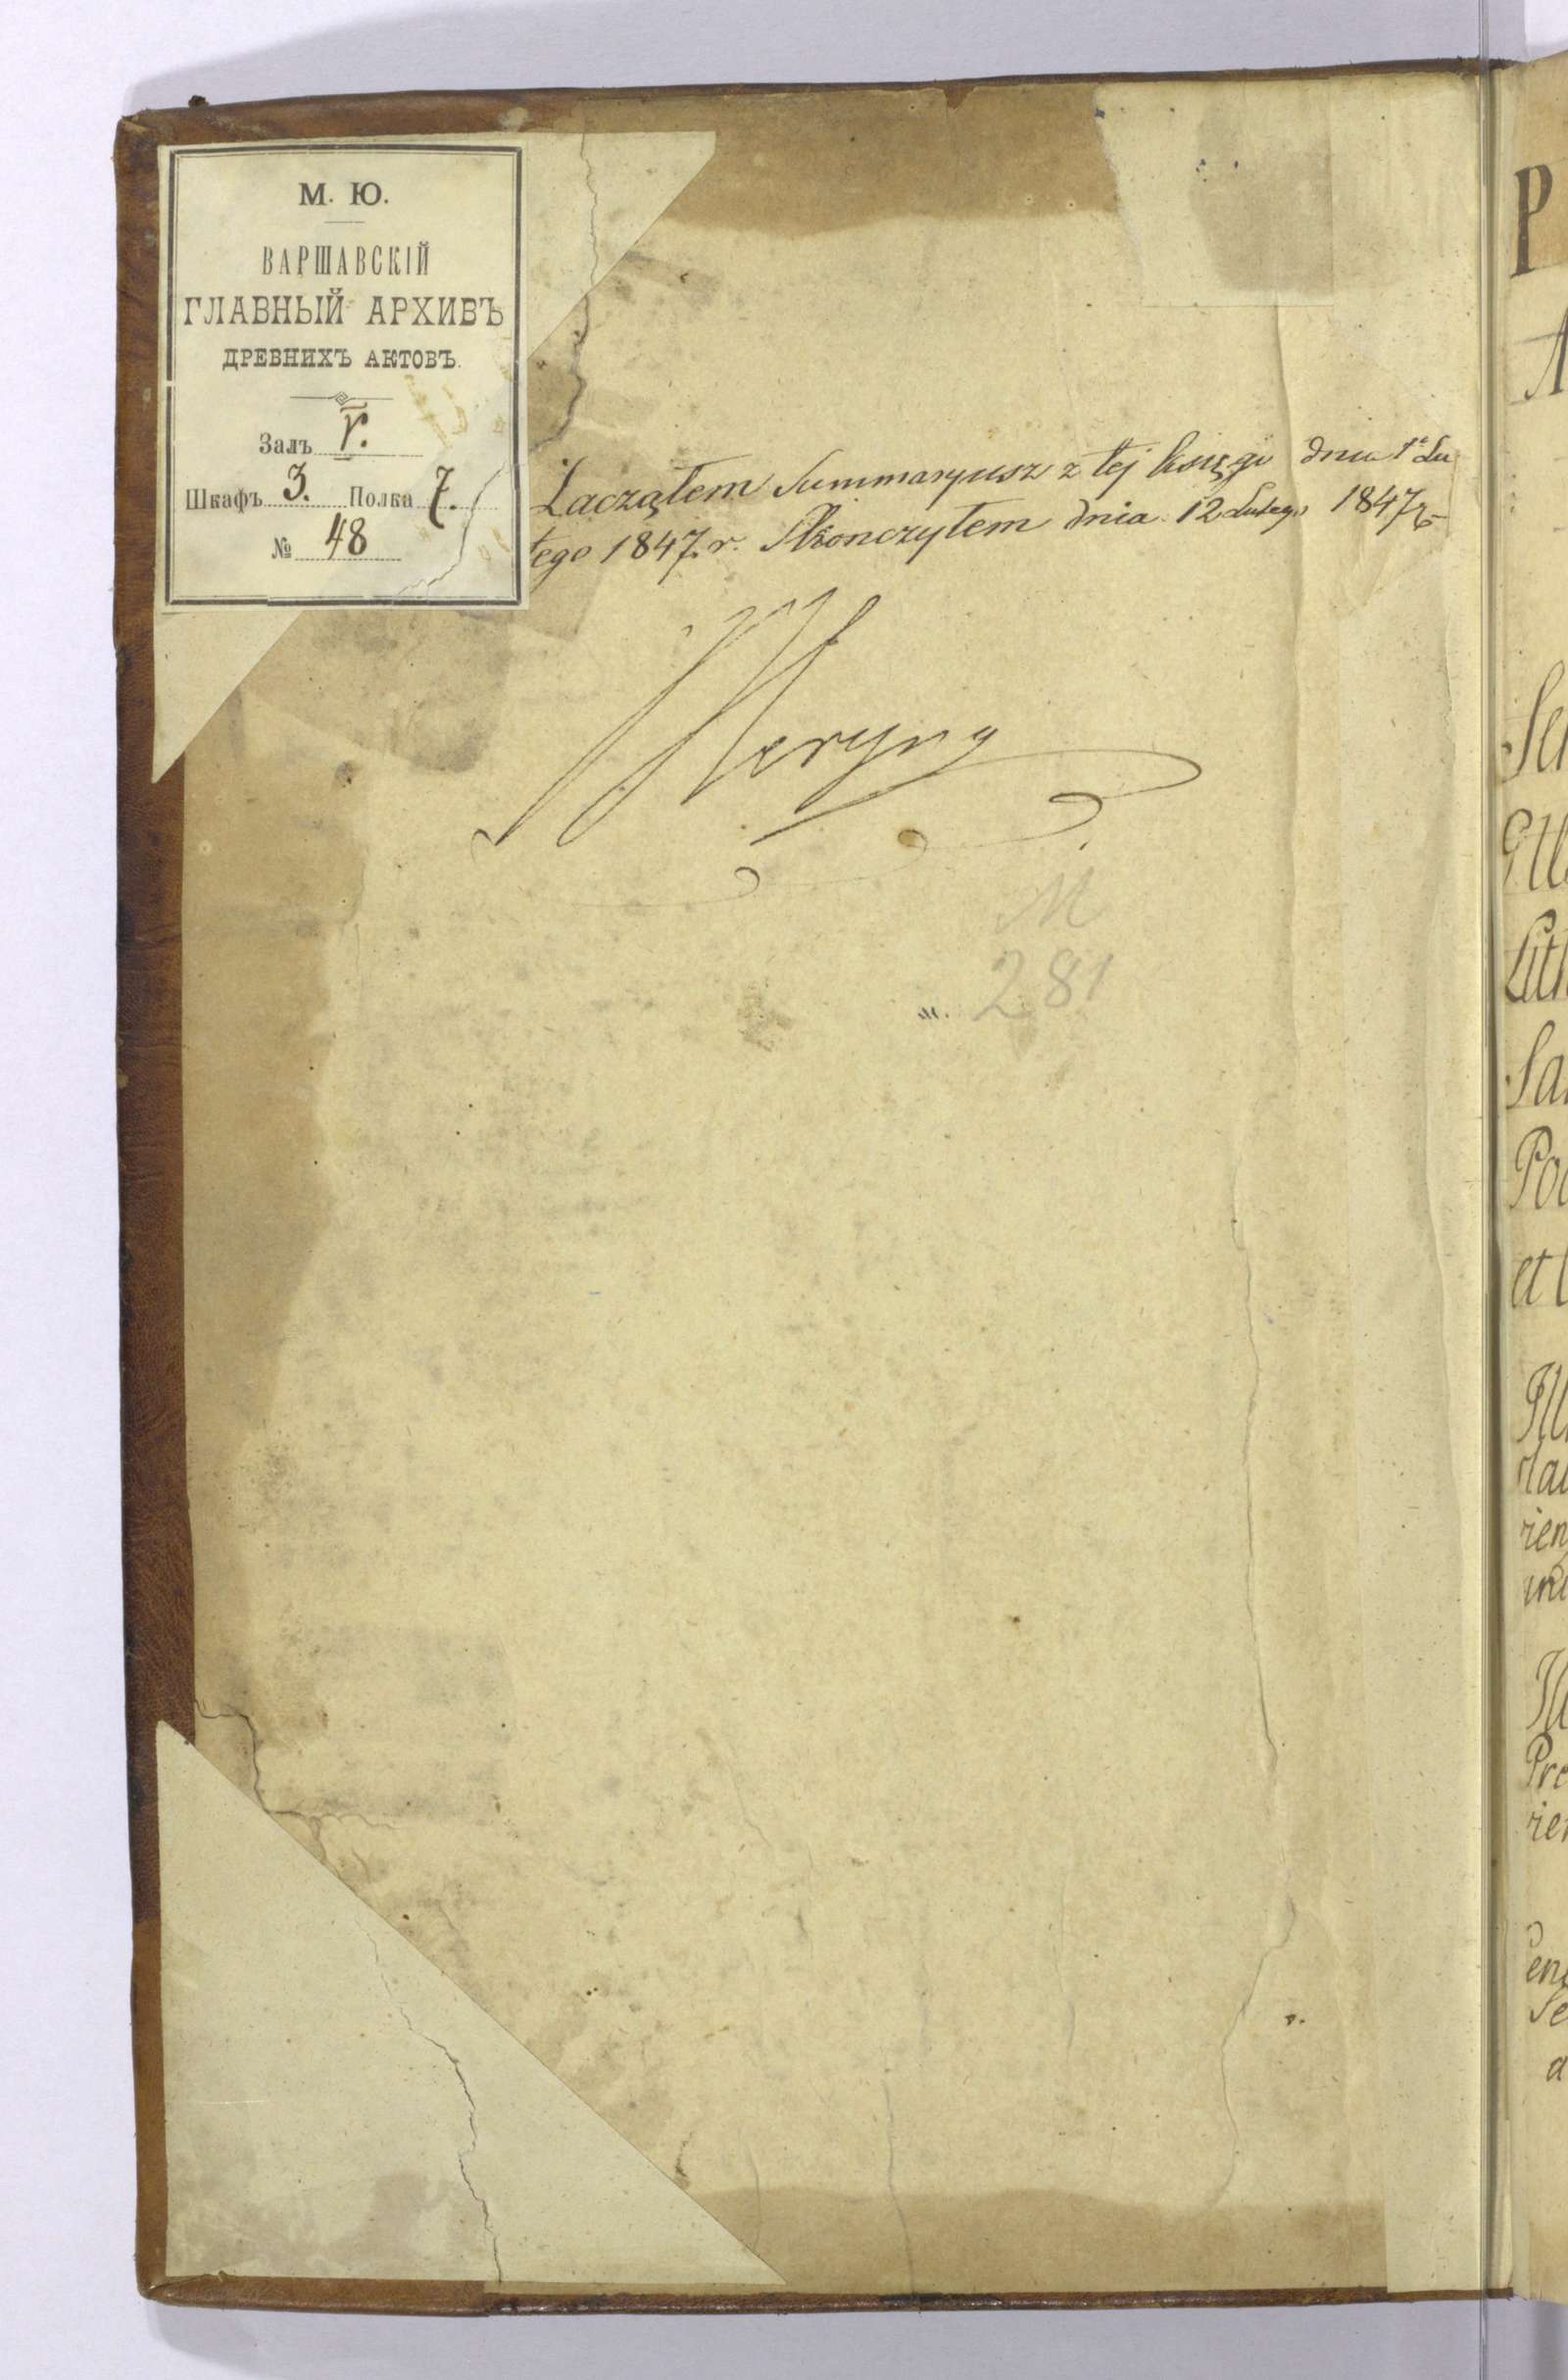 М. Ю.
ВАРШАВСКІЙ
ГЛАВНЫЙ АРХИВЪ
ДРЕВНИХЪ АКТОВЪ.
Залъ V.
Шкафъ 3. Полка 7.
№ 48
Zacząłem Summaryusz z tej księgi dnia 1o Lu
tego 1847 r. Skonczyłem dnia 12 Lutego 1847 r
Heryng
M
281
P
A
Se
Lith
Sa
Po
et
Ill
rien
Ill
Pre
rien